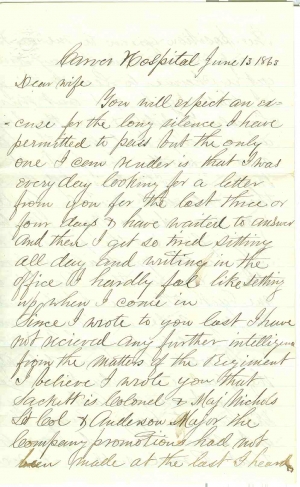 Carver Hospital June 13 1863
Dear Wife
You will expect an ex-
-cuse for the long silence I have
permitted to pass but the only
one I can render is that I was
every day looking for a letter
from you for the last three or
four days & have waited to answer
and then I get so tired sitting
all day and writing in the
office I hardly feel like setting
up when I come in
Since I wrote to you last I have
not recieved any further intelligence
from the matters of the Regiment
I believe I wrote you that
Sackett is Colonel & Maj Nichols
Lt Col & Anderson Major the
Company promotions had not
been made at the last I heard